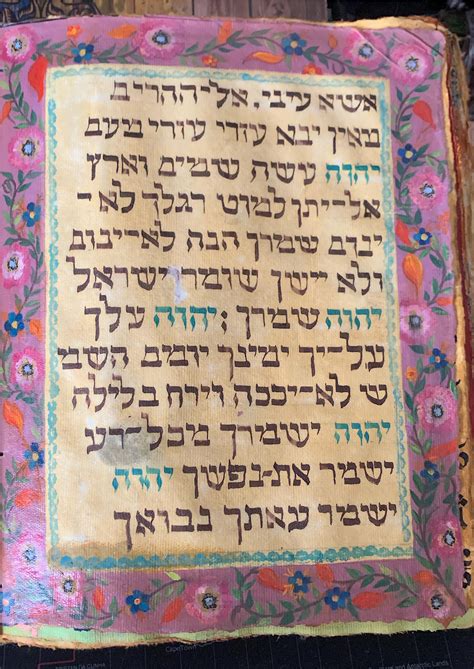 אשא עיני. אל־ההרים
מאין יבא עזרי עזרי מעם
יהוה עשה שמים וארץ
אל־יתן למוט רגלך לא־
ינום שמרך הנה לא־ינום
ולא יישן שומר ישראל
יהוה שמרך ; יהוה עלך
על־יך ימינך יומים השמ
ש לא־יככה וירח בלילה
יהוה ישמירך מיכל־רע
ישמר את־נפשך יהוה
ישמר צאתך ובואך